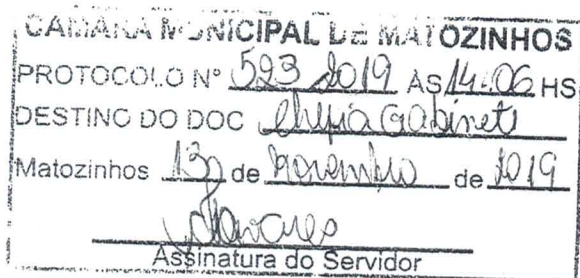 CAMARA MUNICIPAL DE MATOZINHOS
PROTOCOLO Nº 523 2019 AS 14:06 HS
DESTINO DO DOC Chefia Gabinete
Matozinhos 13 de Novembro de 2019
Tavares
Assinatura do Servidor